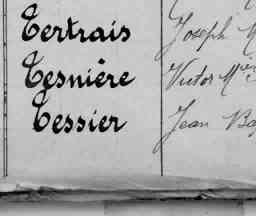 Tertrais Joseph M
Tesnière Victor M
Tessier Jean Ba